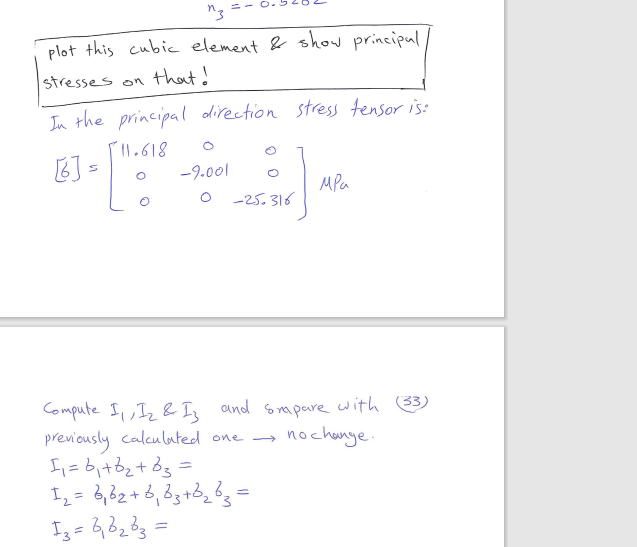 n₃ = - 0.5262
plot this cubic element & show principal
stresses on that!
In the principal direction stress tensor is:
[6] = [ 11.618 0 0
0 -9.001 0
0 0 -25.316 ] MPa
Compute I₁, I₂ & I₃ and smpare with (33)
previously calculated one → no change.
I₁ = б₁ + б₂ + б₃ =
I₂ = б₁б₂ + б₁б₃ + б₂б₃ =
I₃ = б₁б₂б₃ =